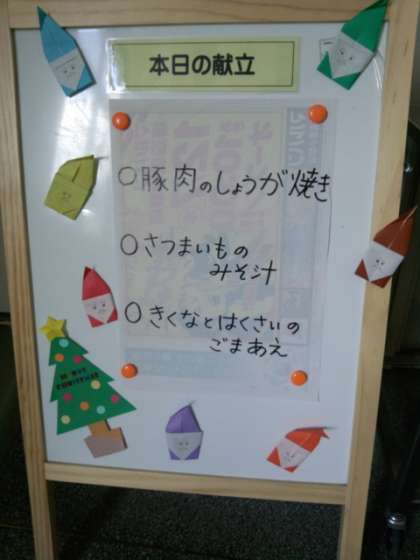 本日の献立
○豚肉のしょうが焼き
○さつまいもの
みそ汁
○きくなとはくさいの
ごまあえ